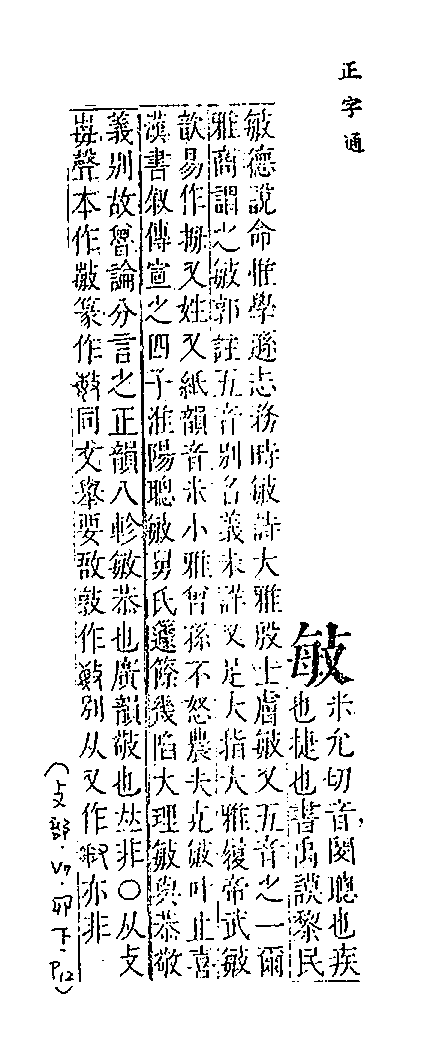 正字通
敏
米允切音閔聰也疾
也捷也書禹謨黎民
敏德說命惟學遜志務時敏詩大雅殷士膚敏又五音之一爾
雅商謂之敏郭註五音別名義未詳又足大指大雅履帝武敏
歆易作拇又姓又紙韻音米小雅曾孫不怒農夫克敏叶止喜
漢書叙傳宣之四子淮陽聰敏舅氏蘧蒢幾陷大理敏與恭敬
義別故魯論分言之正韻八軫敏恭也廣韻敬也𠀤非〇从攴
每聲本作敏篆作敏同文舉要敔敦作敏別从又作𠭴亦非
(攴部．卯下．P12)